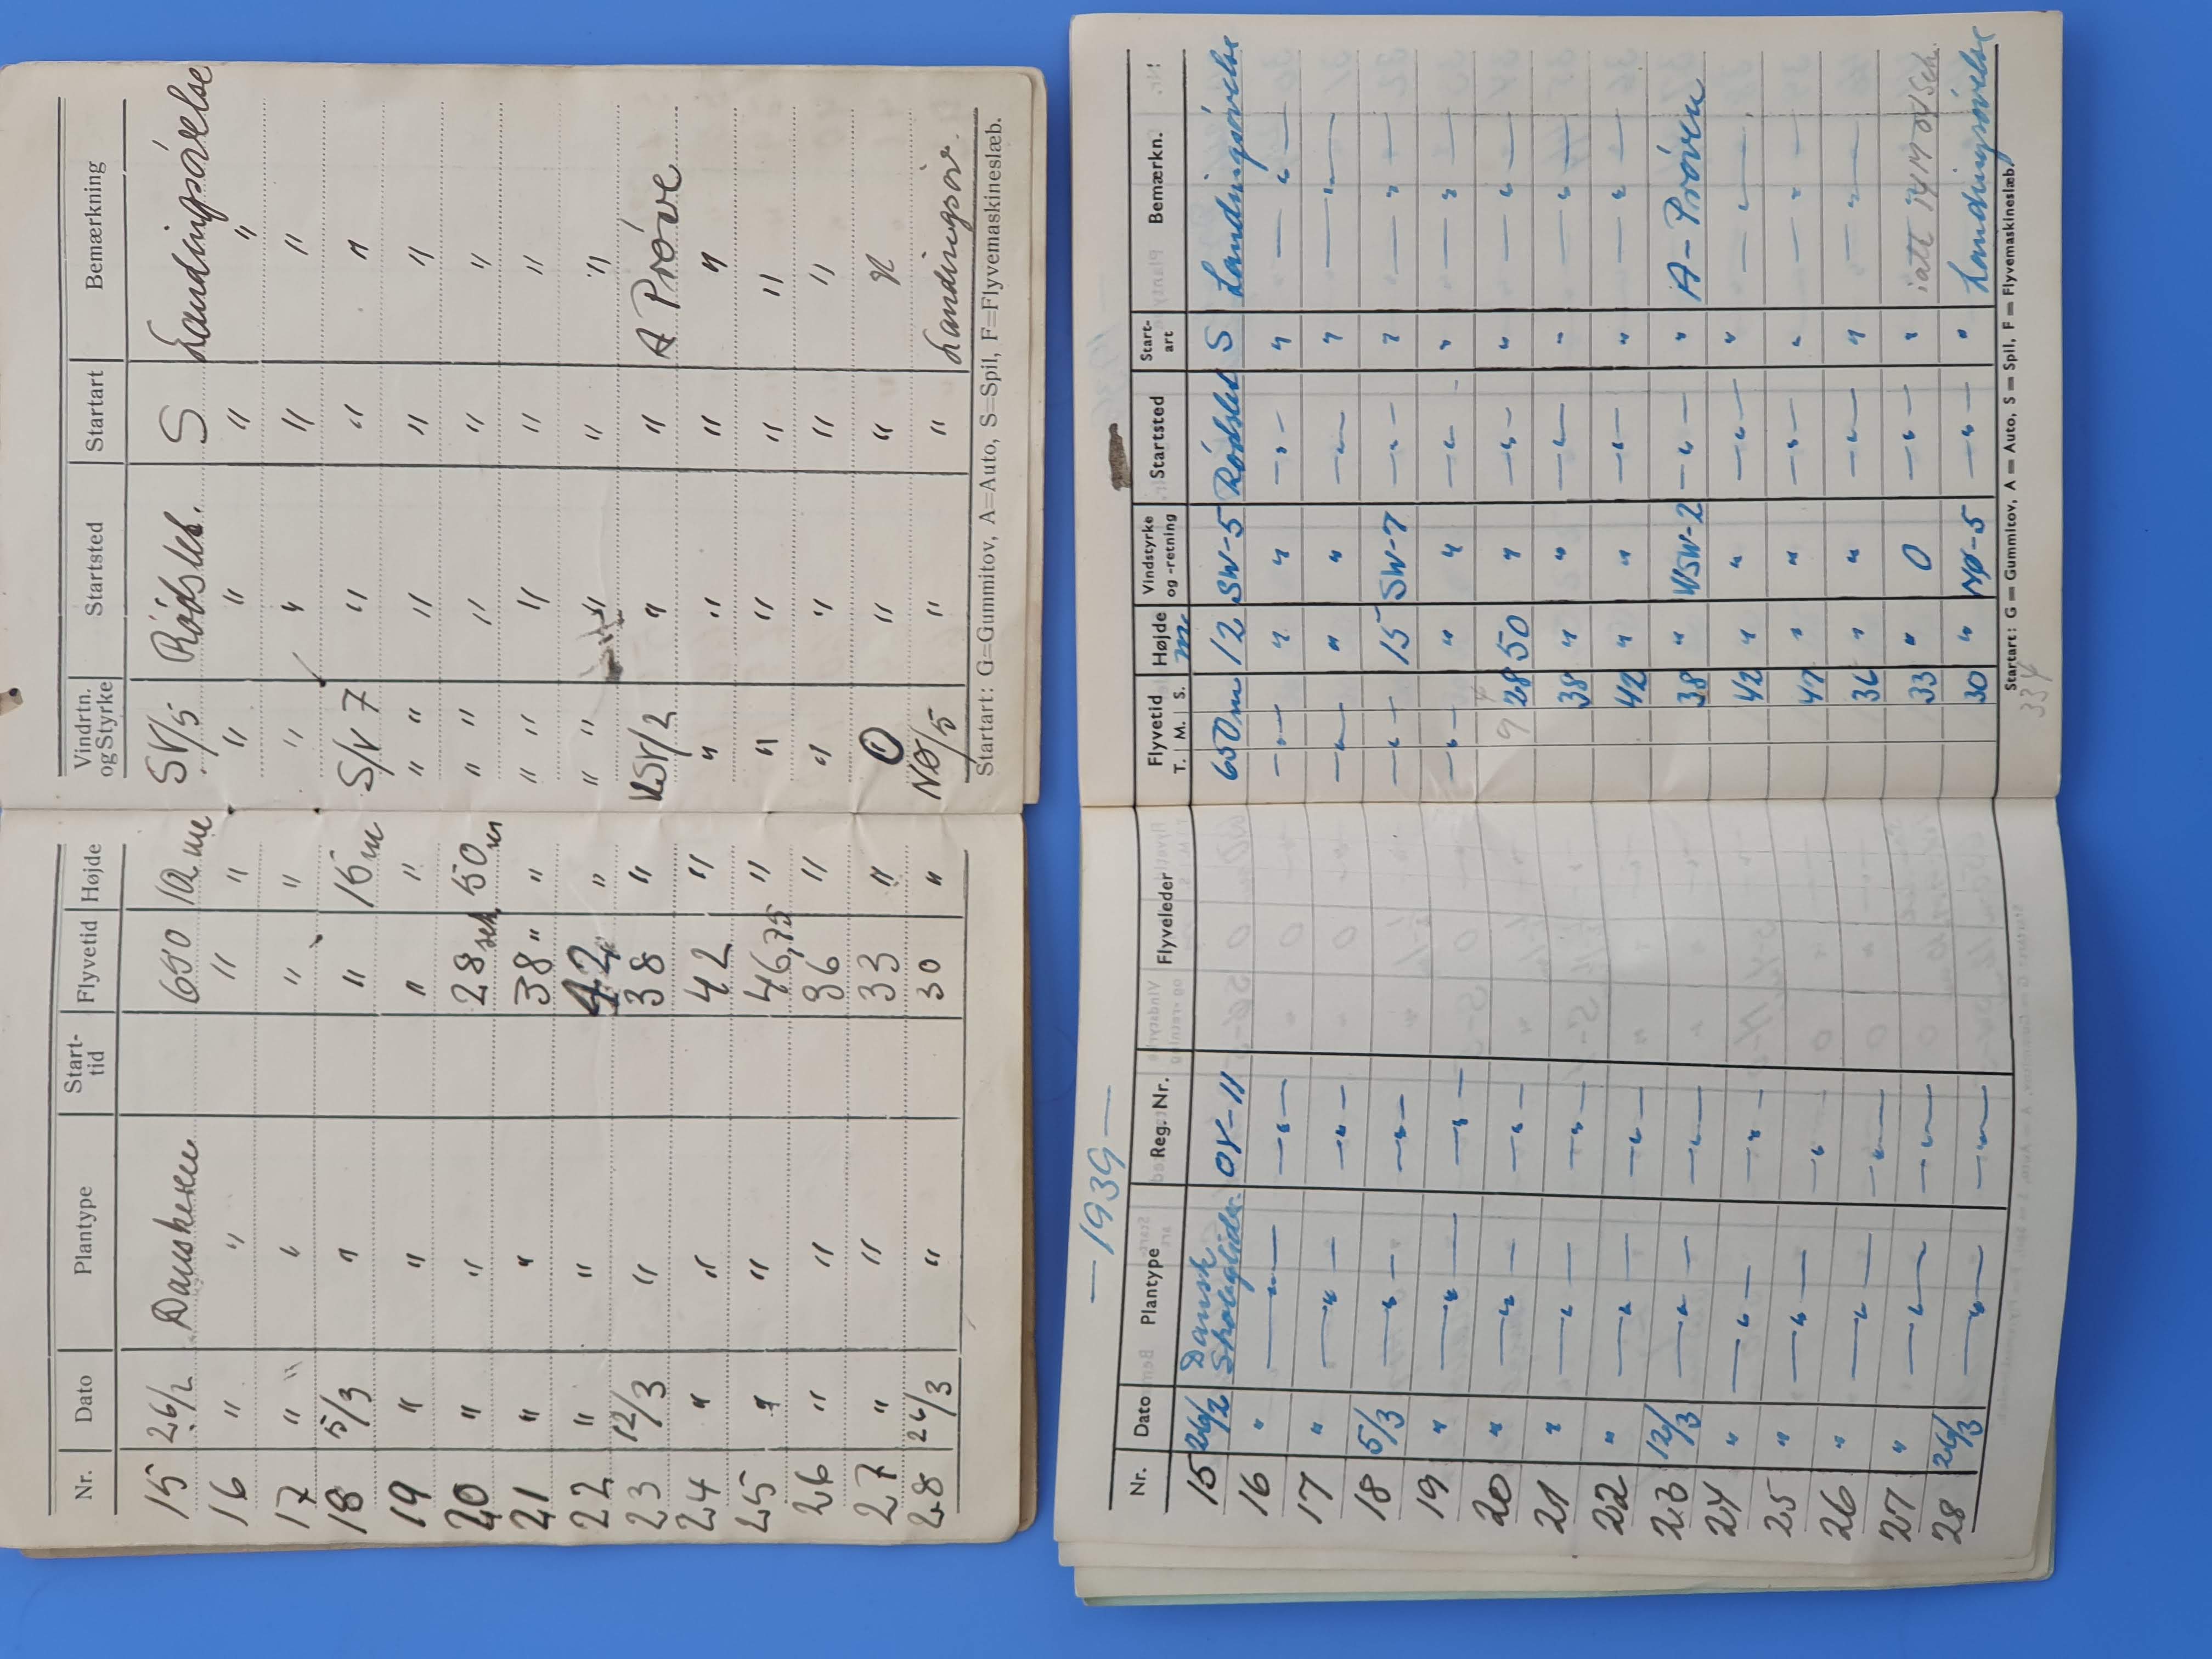 Nr. Dato Plantype Start-tid Flyvetid Højde Vindrtn. og Styrke Startsted Startart Bemærkning
15 26/2 Danskeren 650 12 m SV/5 Rødslet. S Landingsøvelse
16 " " " " " " " "
17 " " " " " " " "
18 5/3 " " 15 m S/V 7 " " "
19 " " " " " " " " "
20 " " 28 sek. 50 m " " " " "
21 " " 38 " " " " " " "
22 " " 42 " " " " " " "
23 12/3 " 38 " VSV/2 " " A Prøve
24 " " 42 " " " " "
25 " " 46,75 " " " " "
26 " " 36 " " " " "
27 " " 33 " 0 " " "
28 26/3 " 30 " NØ/5 " " Landingsøv.
Startart: G=Gummitov, A=Auto, S=Spil, F=Flyvemaskineslæb.
— 1939 —
Nr. Dato Plantype Reg. Nr. Flyveleder Flyvetid T. M. S. Højde m Vindstyrke og -retning Startsted Start-art Bemærkn.
15 26/2 Dansk Skoleglider OY-11 650 m 12 SW-5 Rødslet S Landingsøvelse
16 " —"— —"— —"— " " —"— " —"—
17 " —"— —"— —"— " " —"— " —"—
18 5/3 —"— —"— —"— 15 SW-7 —"— " —"—
19 " —"— —"— —"— " " —"— " —"—
20 " —"— —"— 28 50 " —"— " —"—
21 " —"— —"— 38 " " —"— " —"—
22 " —"— —"— 42 " " —"— " —"—
23 12/3 —"— —"— 38 " WSW-2 —"— " A-Prøven
24 " —"— —"— 42 " " —"— " —"—
25 " —"— " 47 " " —"— " —"—
26 " —"— —"— 36 " " —"— " —"—
27 " —"— —"— 33 " 0 —"— "
28 26/3 —"— —"— 30 " NØ-5 —"— " Landingsøvelse
Startart: G = Gummitov, A = Auto, S = Spil, F = Flyvemaskineslæb.
334